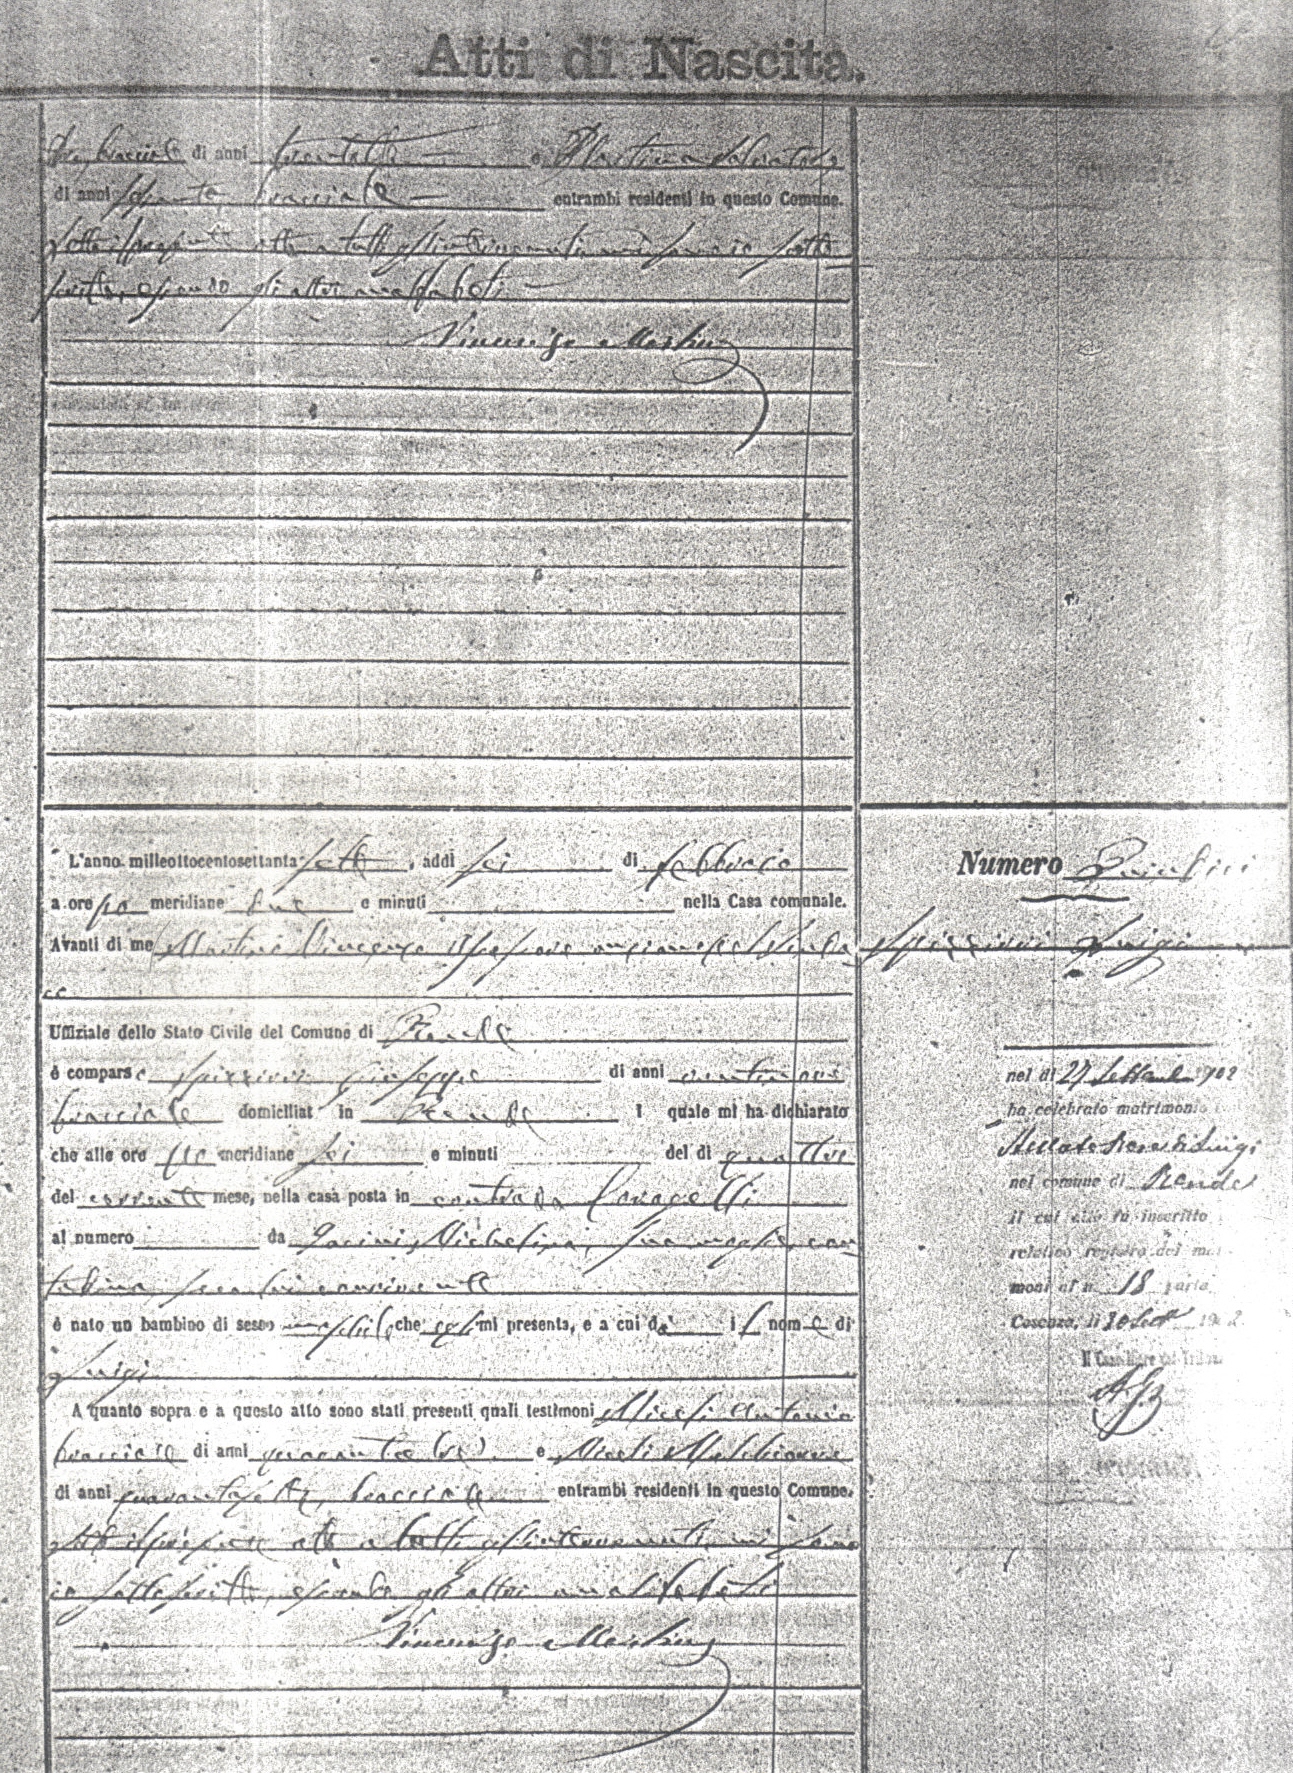 Atti di Nascita.
bracciale di anni trentotto e Martino Salvatore
di anni sessanta bracciale entrambi residenti in questo Comune.
Letto il presente atto a tutti gl'intervenuti, mi sono io sotto
scritto, essendo gli altri analfabeti
Vincenzo Martino
L'anno milleottocentosettantasette, addì sei di febbraio
a ore po meridiane due e minuti nella Casa comunale.
Avanti di me Martino Vincenzo Assessore anziano pel Sinda
co
Uffiziale dello Stato Civile del Comune di Rende
è comparso Spizzirri Giuseppe di anni ventinove
bracciale domiciliat in Rende i quale mi ha dichiarato
che alle ore po meridiane sei e minuti del dì quattro
del corrente mese, nella casa posta in contrada
al numero da Michelina, sua moglie con
tadina, seco lui convivente
è nato un bambino di sesso maschile che egli mi presenta, e a cui dà il nome di
Luigi
A quanto sopra e a questo atto sono stati presenti quali testimoni Miceli Antonio
bracciale di anni quarantatre e Miceli Melchiorre
di anni quarantasette, bracciale entrambi residenti in questo Comune.
Letto il presente atto a tutti gl'intervenuti, mi sono
io sottoscritto, essendo gli altri analfabeti
Vincenzo Martino
Numero Quindici
Spizzirri Luigi
nel dì 27 Settemb 1902
ha celebrato matrimonio
di Luigi
nel comune di Rende
il cui atto fu inscritto
relativo registro dei matri
moni al n. 18 parte
Cosenza, li 30 Sett 1902
Il Cancelliere del Tribun